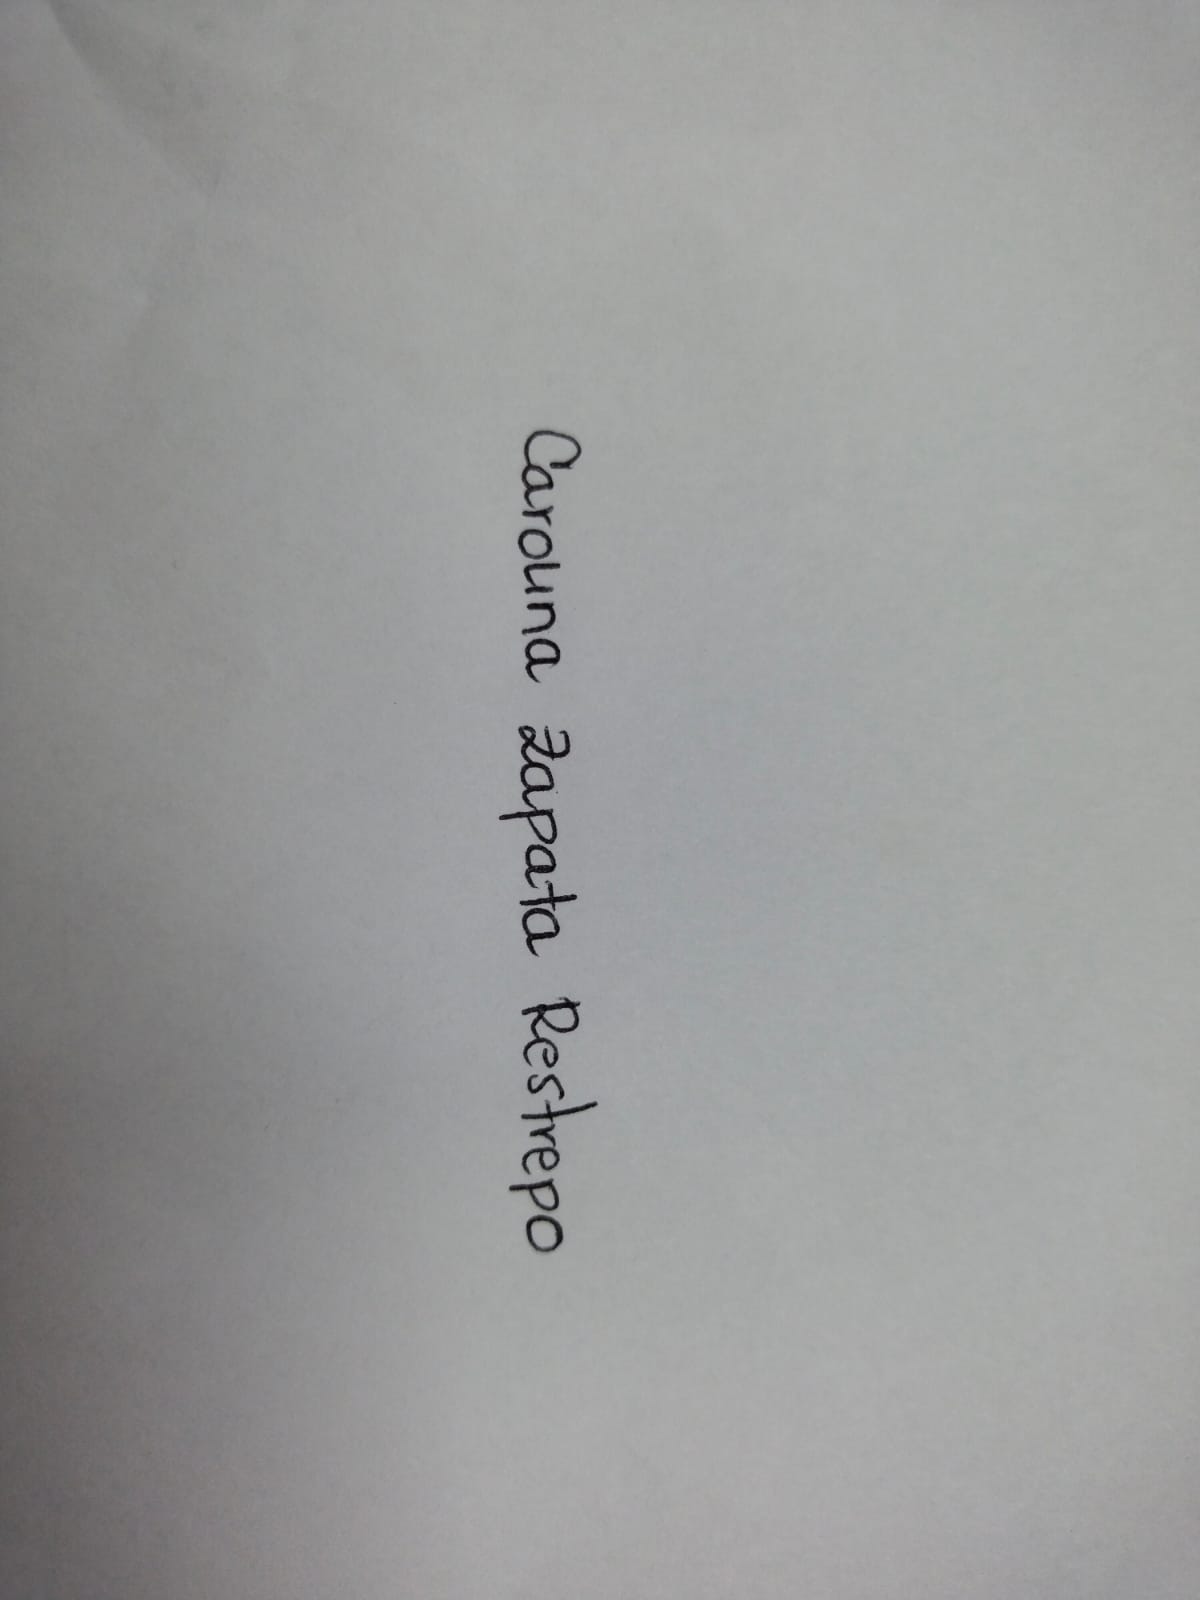 Carolina Zapata Restrepo